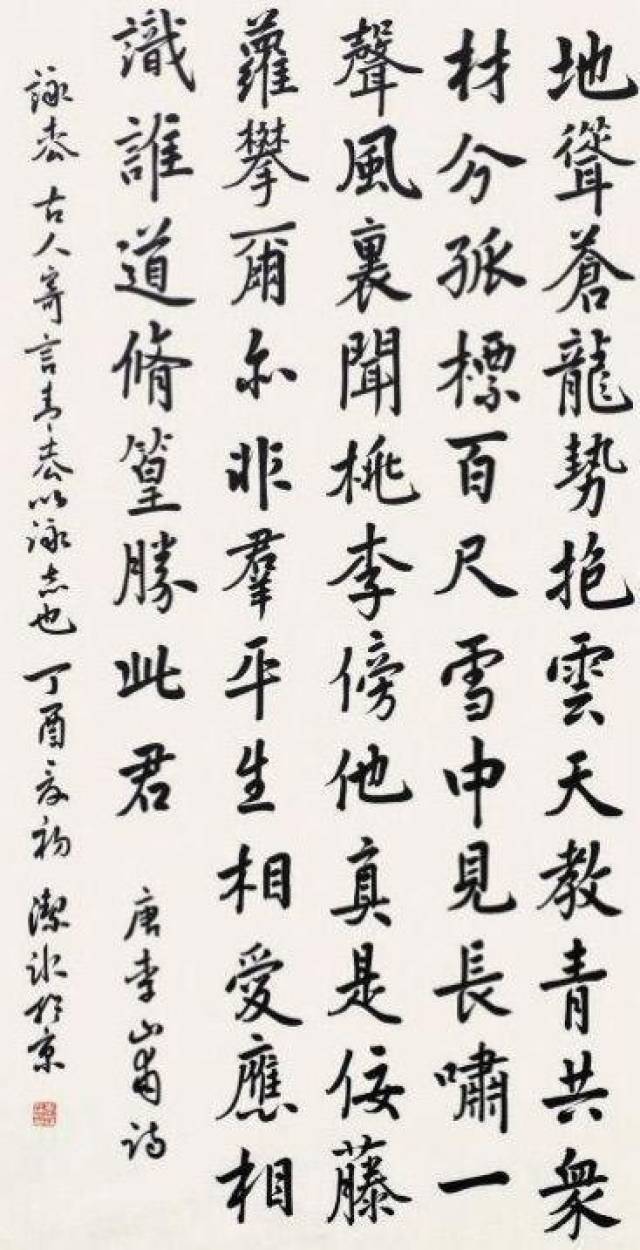 地聳蒼龍勢抱雲天教青共衆
材分孤標百尺雪中見長嘯一
聲風裏聞桃李傍他真是佞藤
蘿攀爾亦非羣平生相愛應相
識誰道脩篁勝此君 唐李山甫詩
詠枩 古人寄言青枩以詠志也 丁酉夏初 潔冰於京